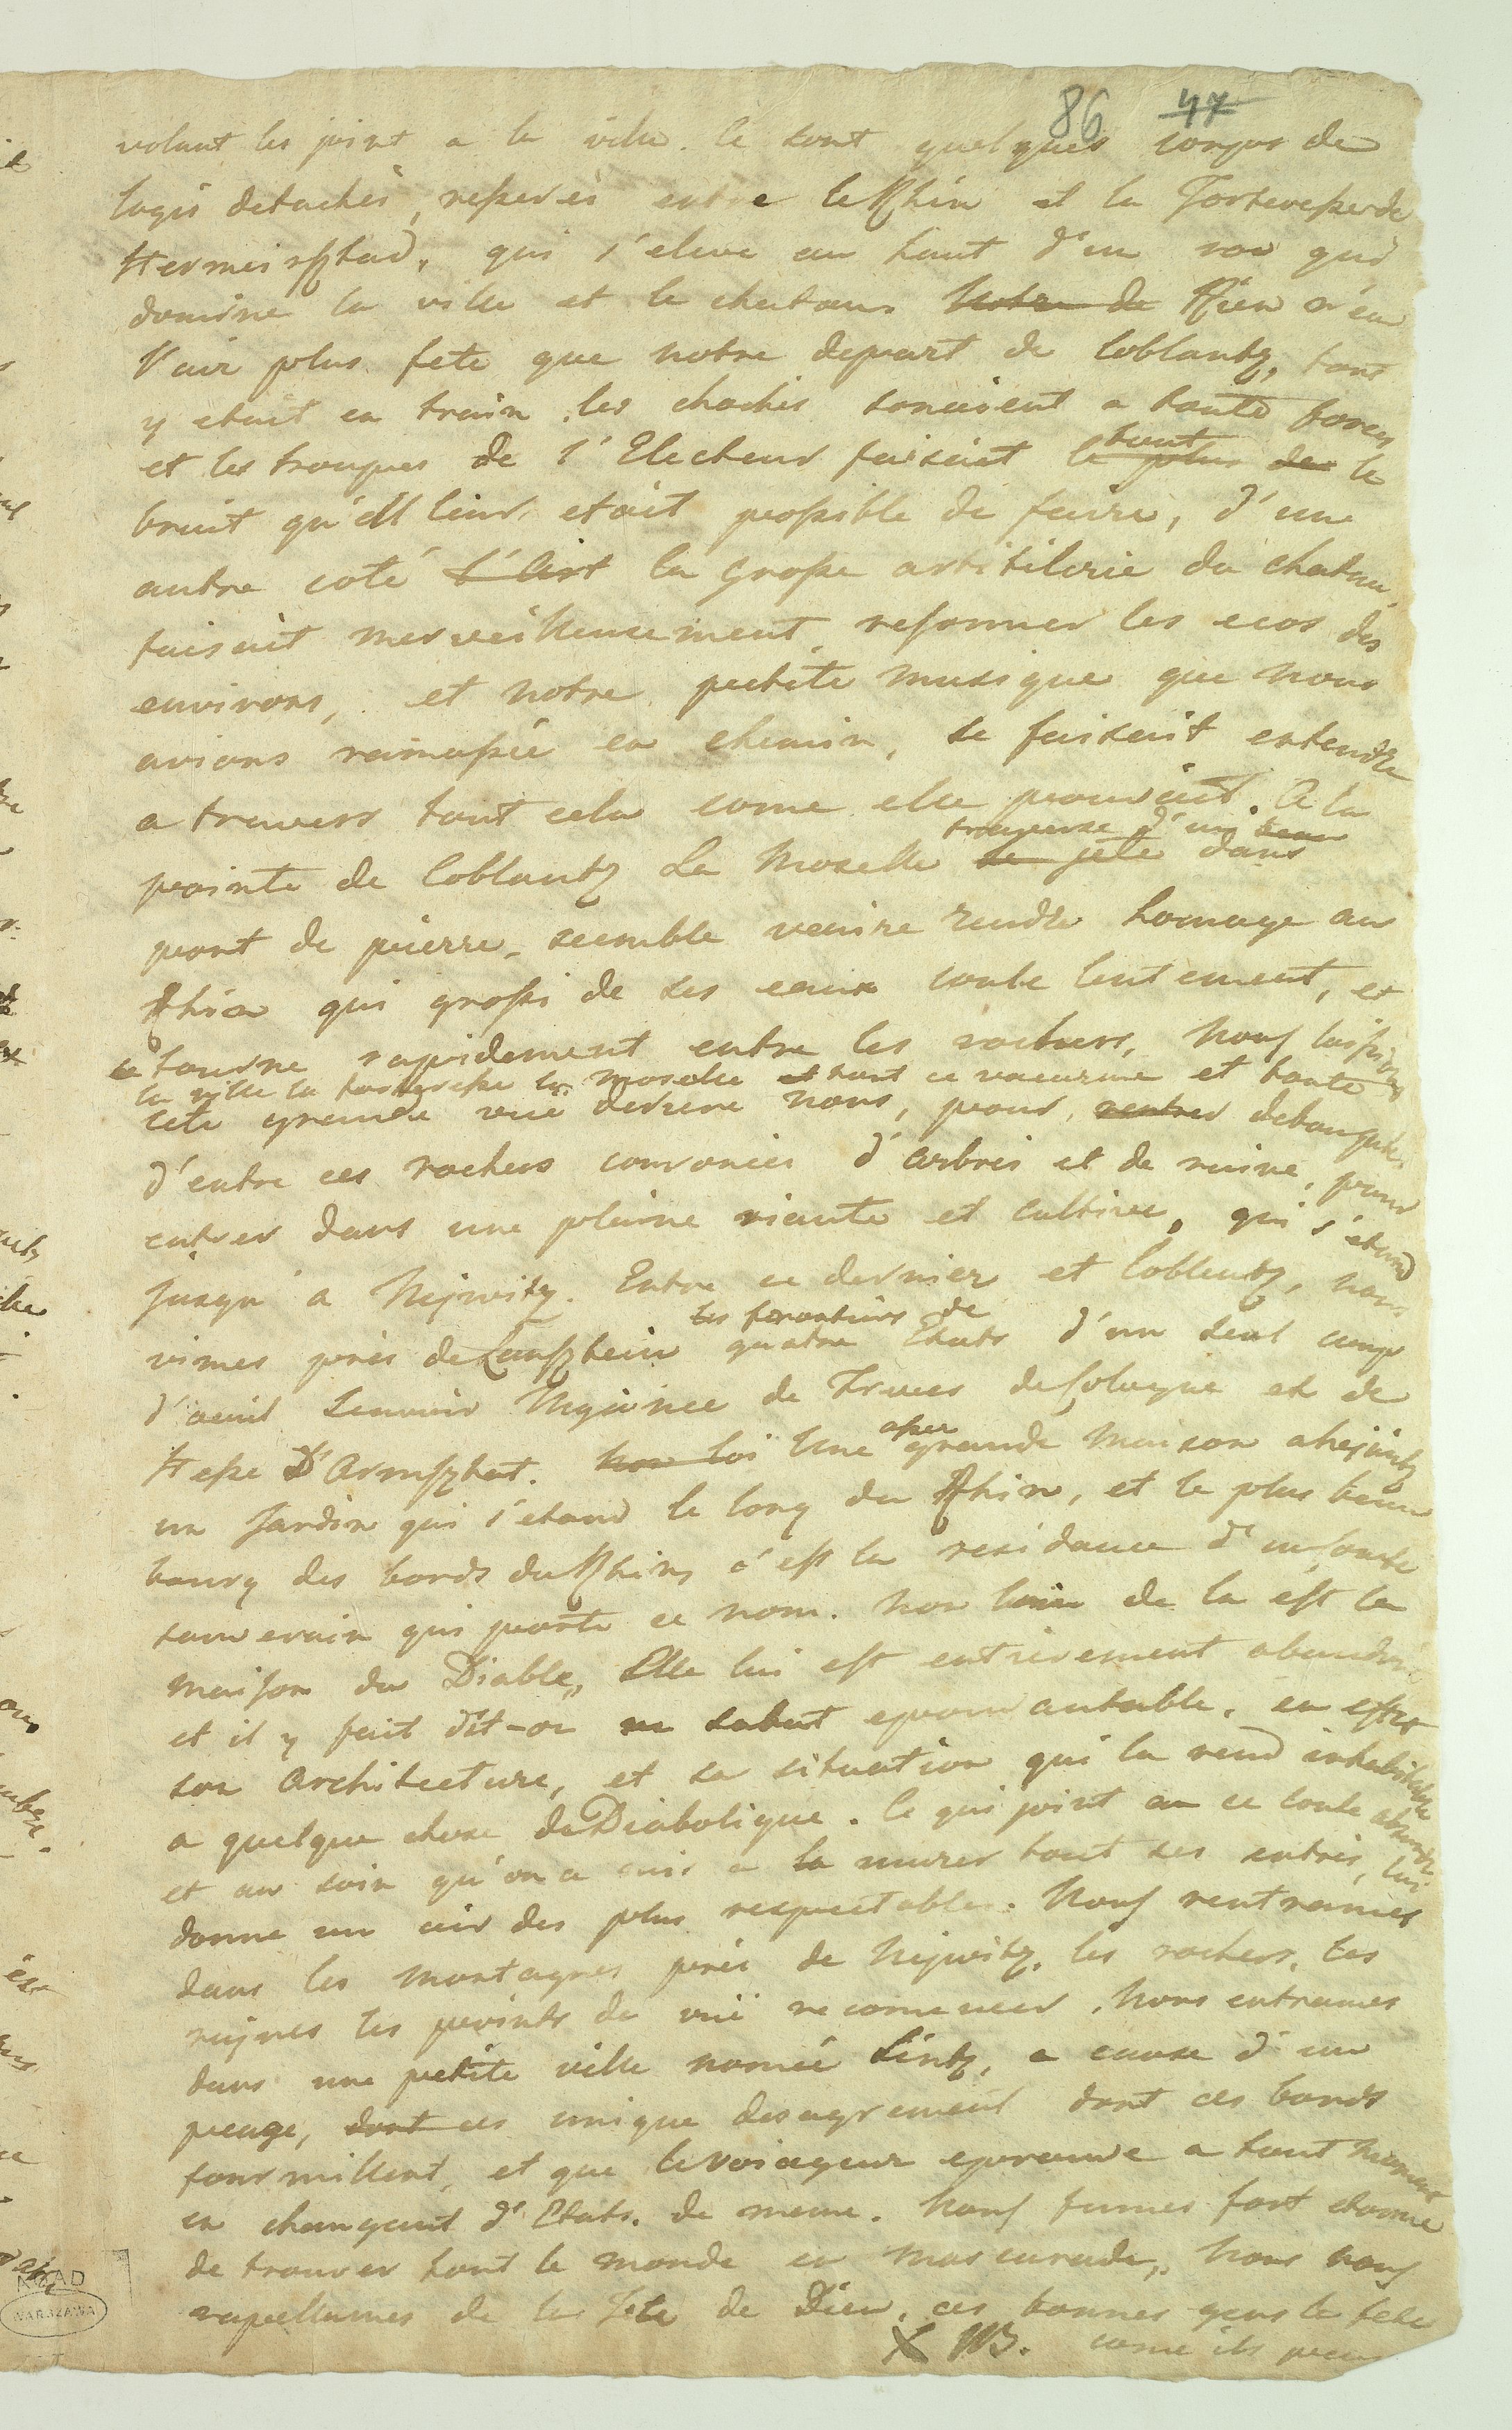 86 47
volant les joint a la ville. Ce sont quelques corps de
logis detachés, resserés entre le Rhin et la Forteresse de
Hermeisztad, qui s'eleve au haut d'un roc qui
domine la ville et le chateau. Notre de Rien n'eu
l'air plus fete que notre depart de Coblantz, tout
y etoit en train, les cloches sonaient a toute force
et les troupes de l'Electeur faisoit le plus de tout le
bruit qu'il leur etoit possible de faire, d'une
autre coté L'art la grosse artitilerie du chateau
faisoit merveilleusement resonner les ecos des
environs, et notre petite musique que nous
avions ramassée en chemin, se faisait entendre
a travers tout cela come elle pouvoit. A la
traversé d'un beau
pointe de Coblantz La Moselle se jete dans
pont de pierre, semble venire rendre homage au
Rhin qui grossi de ses eaux coule lentement, et
tourne rapidement entre les rochers, Nous laissions
la ville la forteresse la Moselle et tout ce vacarme et toute
cete grande vue deriere nous, pour rentrer debouquer
d'entre ces rochers couronées d'arbres et de ruine, pour
entrer dans une plaine riante et cultivee, qui s'etend
jusqu'a Nejwitz. Entre ce dernier et Coblentz, nous
les frontiers de
vimes près de Lansztein quatre Etats d'un seul coup
d'oeuil Scavoir Mayence de Treves de Cologne et de
Hesse D'Armsztat. Non loi Une asser grande maison a Nejwitz
un Jardin qui s'etand le long du Rhin, et le plus beau
bourg des bords du Rhin, c'est la residance d'un Comte
souverain qui porte ce nom. Non loin de la est la
maison du Diable, Elle lui est entierement abandoné
et il y fait dit-on un sabat epouvantable, en effet
son Architecture, et sa situation qui la rend inhabitable
a quelque chose de Diabolique. Ce qui joint au ce conte absurde
et au soin qu'on a mis a la murer tout ses entrés, lui
donne un air des plus respectables. Nous rentrames
dans les montagnes près de Nejwitz, les rochers, les
rujnes les points de vuë recomencer. Nous entrames
dans une petite ville nomée Lintz, a cause d'un
peage, dont ces unique desagrement dont ces bords
fourmillent, et que le voiageur eprouve a tout moment
en changeant d'Etats. de meme. Nous fumes fort etonné
de trouver tout le monde en mascarade, Nous nous
rapellames de la Fete de Dieu, ces bonnes gens la fete
X NB. come ils peuv
AGAD
WARSZAWA